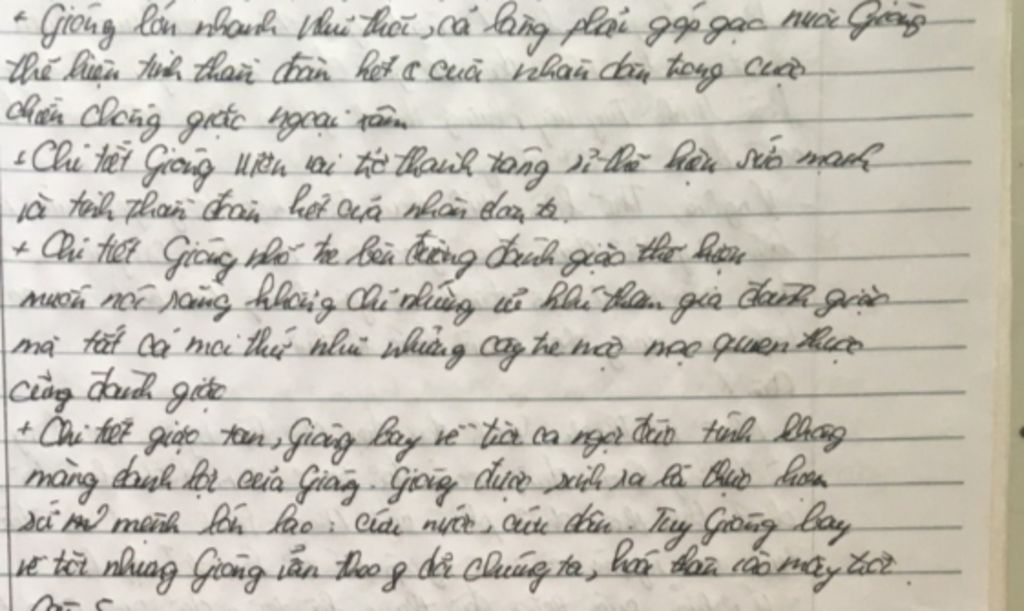 + Gióng lớn nhanh như thổi, cả làng phải góp gạo nuôi Gióng
thể hiện tinh thần đoàn kết của nhân dân trong cuộc
chiến chống giặc ngoại xâm
+ Chi tiết Gióng vươn vai trở thành tráng sĩ thể hiện sức mạnh
và tinh thần đoàn kết của nhân dân ta.
+ Chi tiết Gióng nhổ tre bên đường đánh giặc thể hiện
muốn nói rằng không chỉ những vũ khí tham gia đánh giặc
mà tất cả mọi thứ như những cây tre mộc mạc quen thuộc
cũng đánh giặc
+ Chi tiết giặc tan, Gióng bay về trời ca ngợi đức tính không
màng danh lợi của Gióng. Gióng được sinh ra là thực hiện
sứ mệnh lớn lao: cứu nước, cứu dân. Tuy Gióng bay
về trời nhưng Gióng vẫn theo dõi chúng ta, hoá thân vào mây trời.
Câu 5